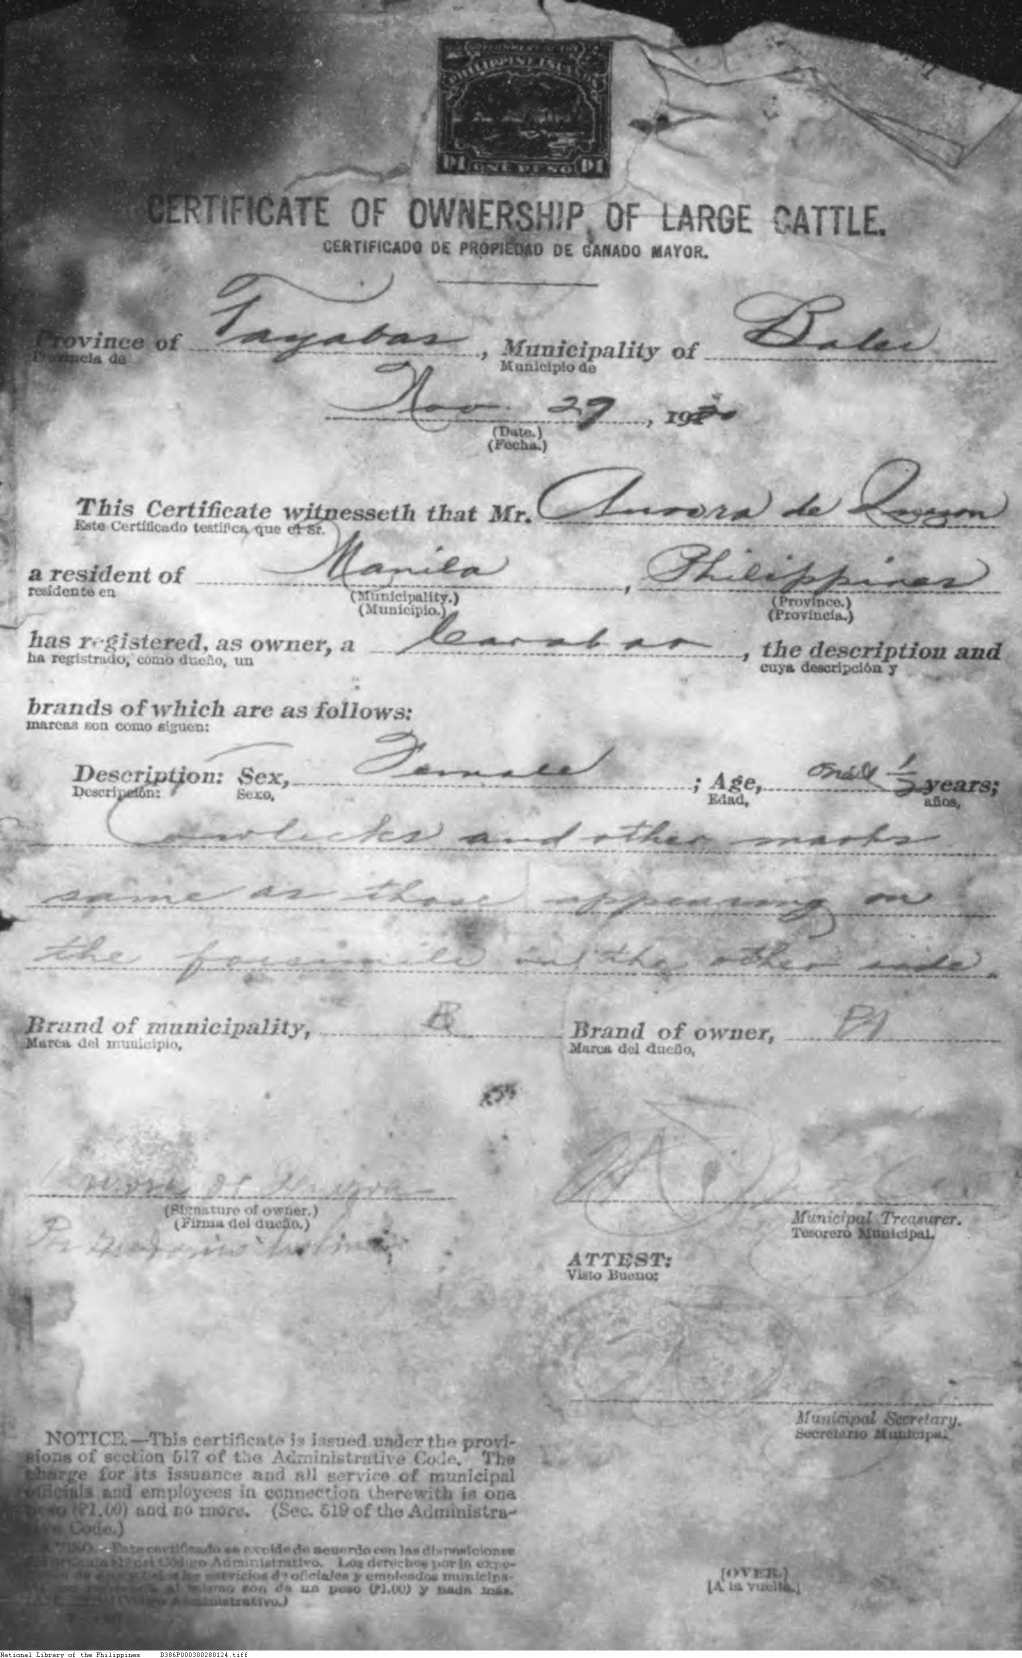 GOVERNMENT OF THE
PHILIPPINE ISLANDS
P1 ONE PESO P1
CERTIFICATE OF OWNERSHIP OF LARGE CATTLE.
CERTIFICADO DE PROPIEDAD DE GANADO MAYOR.
Province of Tayabas, Municipality of Baler
Provincia de Municipio de
Nov. 29, 19
(Date.)
(Fecha.)
This Certificate witnesseth that Mr. Aurora de Quezon
Este Certificado testifica que el Sr.
a resident of Manila, Philippines
residente en (Municipality.) (Province.)
(Municipio.) (Provincia.)
has registered, as owner, a Carabao, the description and
ha registrado, como dueño, un cuya descripción y
brands of which are as follows:
marcas son como siguen:
Description: Sex, Female; Age, 1/2 years;
Descripción: Sexo, Edad, años,
Cowlicks and other marks
same as those appearing on
the facsimile on the other side.
Brand of municipality, B Brand of owner, PA
Marca del municipio, Marca del dueño,
Aurora de Quezon
(Signature of owner.) Municipal Treasurer.
(Firma del dueño.) Tesorero Municipal.
ATTEST:
Visto Bueno:
Municipal Secretary.
Secretario Municipal.
NOTICE.—This certificate is issued under the provi-
sions of section 517 of the Administrative Code. The
charge for its issuance and all service of municipal
officials and employees in connection therewith is one
peso (₱1.00) and no more. (Sec. 519 of the Administra-
tive Code.)
AVISO.—Este certificado se expide de acuerdo con las disposiciones
del Código Administrativo. Los derechos por la expe-
servicios de oficiales y empleados municipa-
mismo son de un peso (₱1.00) y nada más.
Administrativo.)
[OVER.]
[A la vuelta.]
National Library of the Philippines B386P000300280124.tiff